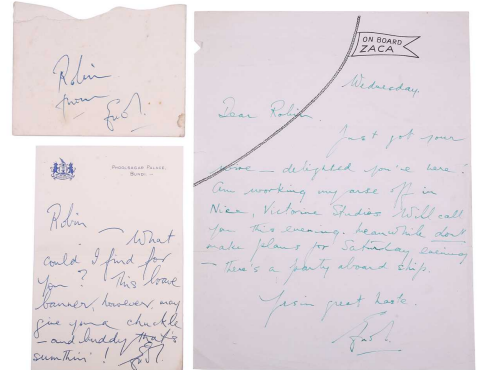 Robin
from
PHOOLSAGAR PALACE,
BUNDI.
Robin
— What
could I find for
you? This
banner, however, may
give you a chuckle
— and buddy that's
sumthin'!
ON BOARD
ZACA
Wednesday.
Dear Robin.
Just got your
— delighted you're here!
Am working my arse off in
Nice, Victorine Studios. Will call
you this evening. Meanwhile don't
make plans for Saturday evening
— there's a party aboard ship.
Yrs in great haste.